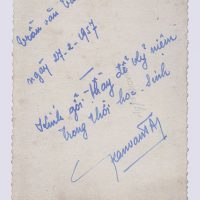 trần văn
ngày 27-2-1957
Kính gởi Thầy để kỷ niệm
Trong thời học-sinh